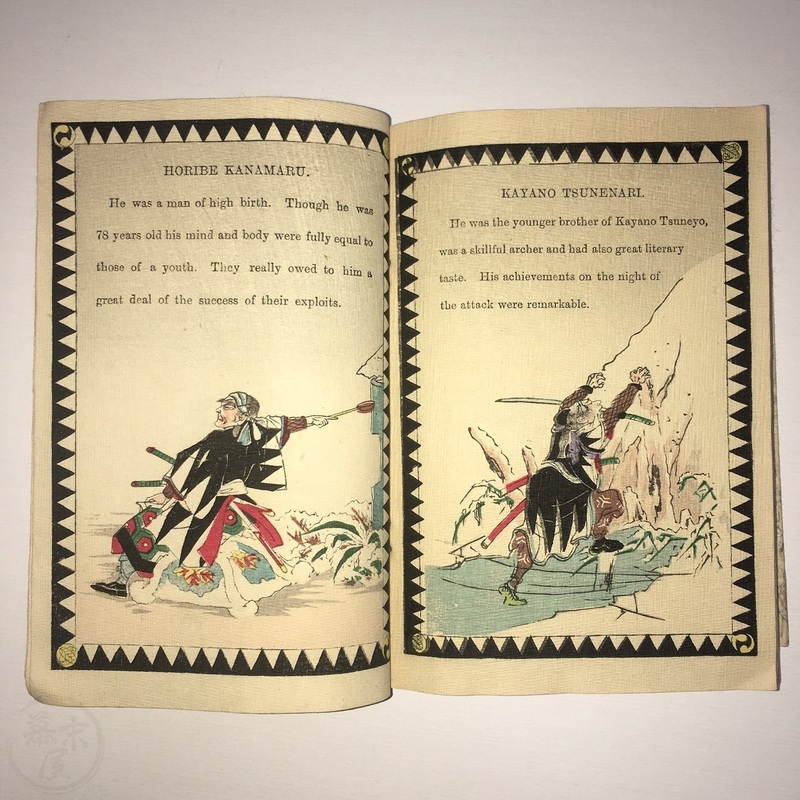 HORIBE KANAMARU.
He was a man of high birth. Though he was
78 years old his mind and body were fully equal to
those of a youth. They really owed to him a
great deal of the success of their exploits.
KAYANO TSUNENARI.
He was the younger brother of Kayano Tsuneyo,
was a skillful archer and had also great literary
taste. His achievements on the night of
the attack were remarkable.
幕末屋